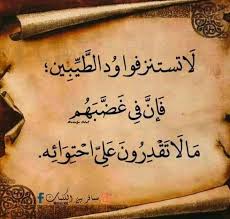 لَا تستنزفوا وُد الطَّيِّبِين؛
فَإنَّ فِي غَضَبَهُم
مَا لَا تَقْدِرُونَ عَلَى احْتِوَائِه.